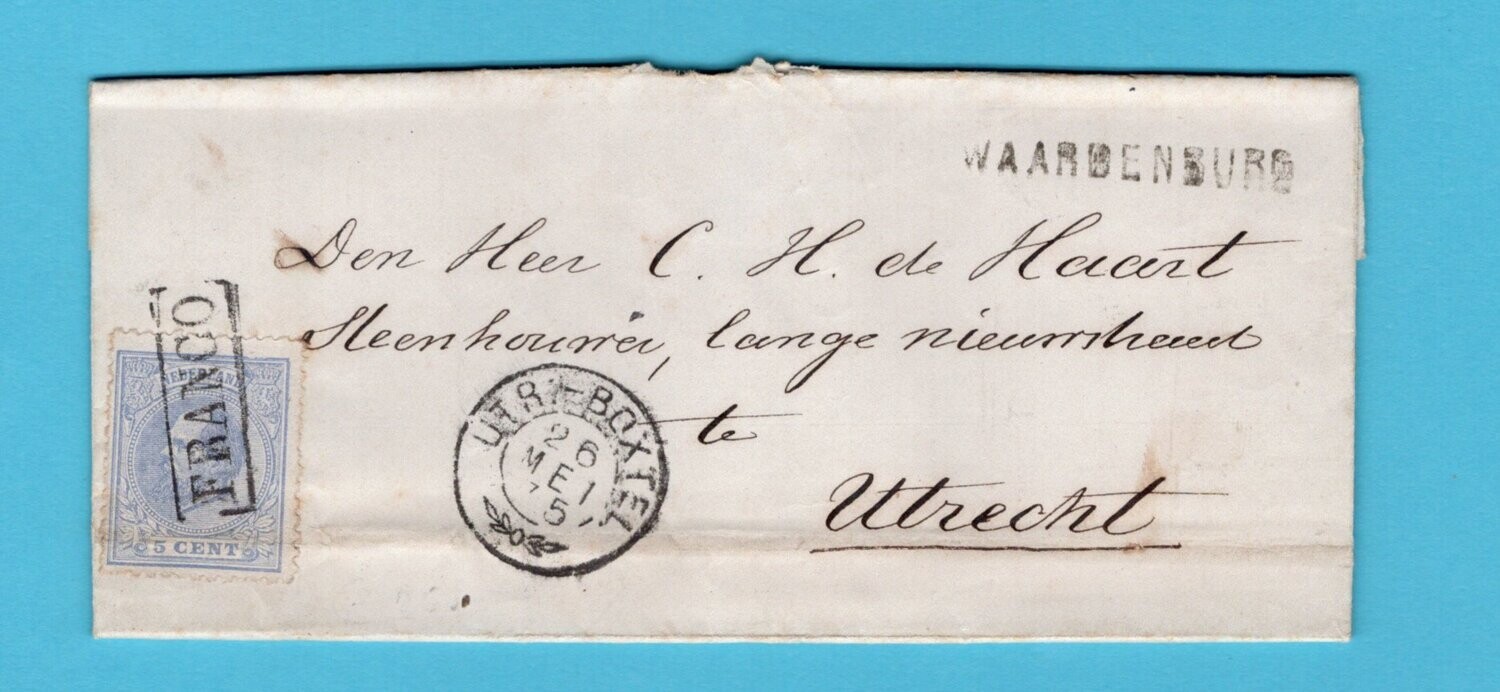 WAARDENBURG
Den Heer C. H. de Haart
Steenhouwer, lange nieuwstraat
te
Utrecht
FRANCO
NEDERLAND
5 CENT
UTR:-BOXTEL
26
MEI
75